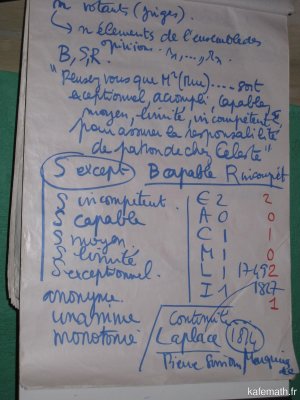 n votants (juges).
n éléments de l'ensemble des
opinions r1,..., rn
B, S, R.
"Pensez vous que Mr (Mme) .... soit
exceptionnel, accompli, capable
moyen, limité, incompétent
pour assurer la responsabilité
de patron de chez Celeste"
S except B capable R incompét
S incompetent.
S capable
S moyen.
S limité
S exceptionnel.
E 2 2
A 0 0
C 1 1
M 1 0
L 1 1749 2
I 1 1827 1
anonyme
unanime
monotonie
Continuité
Laplace 1814
Pierre Simon Marquis de
kafemath.fr